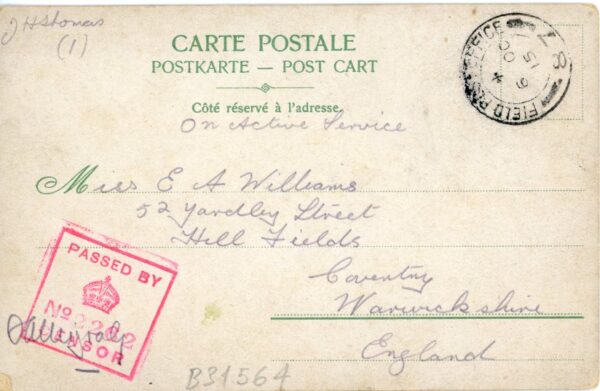 J H Thomas
(1)
CARTE POSTALE
POSTKARTE — POST CART
Côté réservé à l'adresse.
On Active Service
FIELD POST OFFICE
Z 8
9 OC
15
Miss E A Williams
52 Yardley Street
Hill Fields
Coventry
Warwickshire
England
PASSED BY
No 2282
CENSOR
B31564